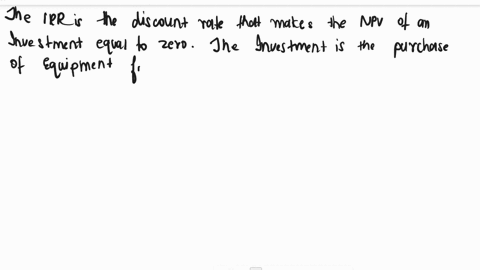 The IRR is the discount rate that makes the NPV of an
Investment equal to zero. The Investment is the purchase
of Equipment